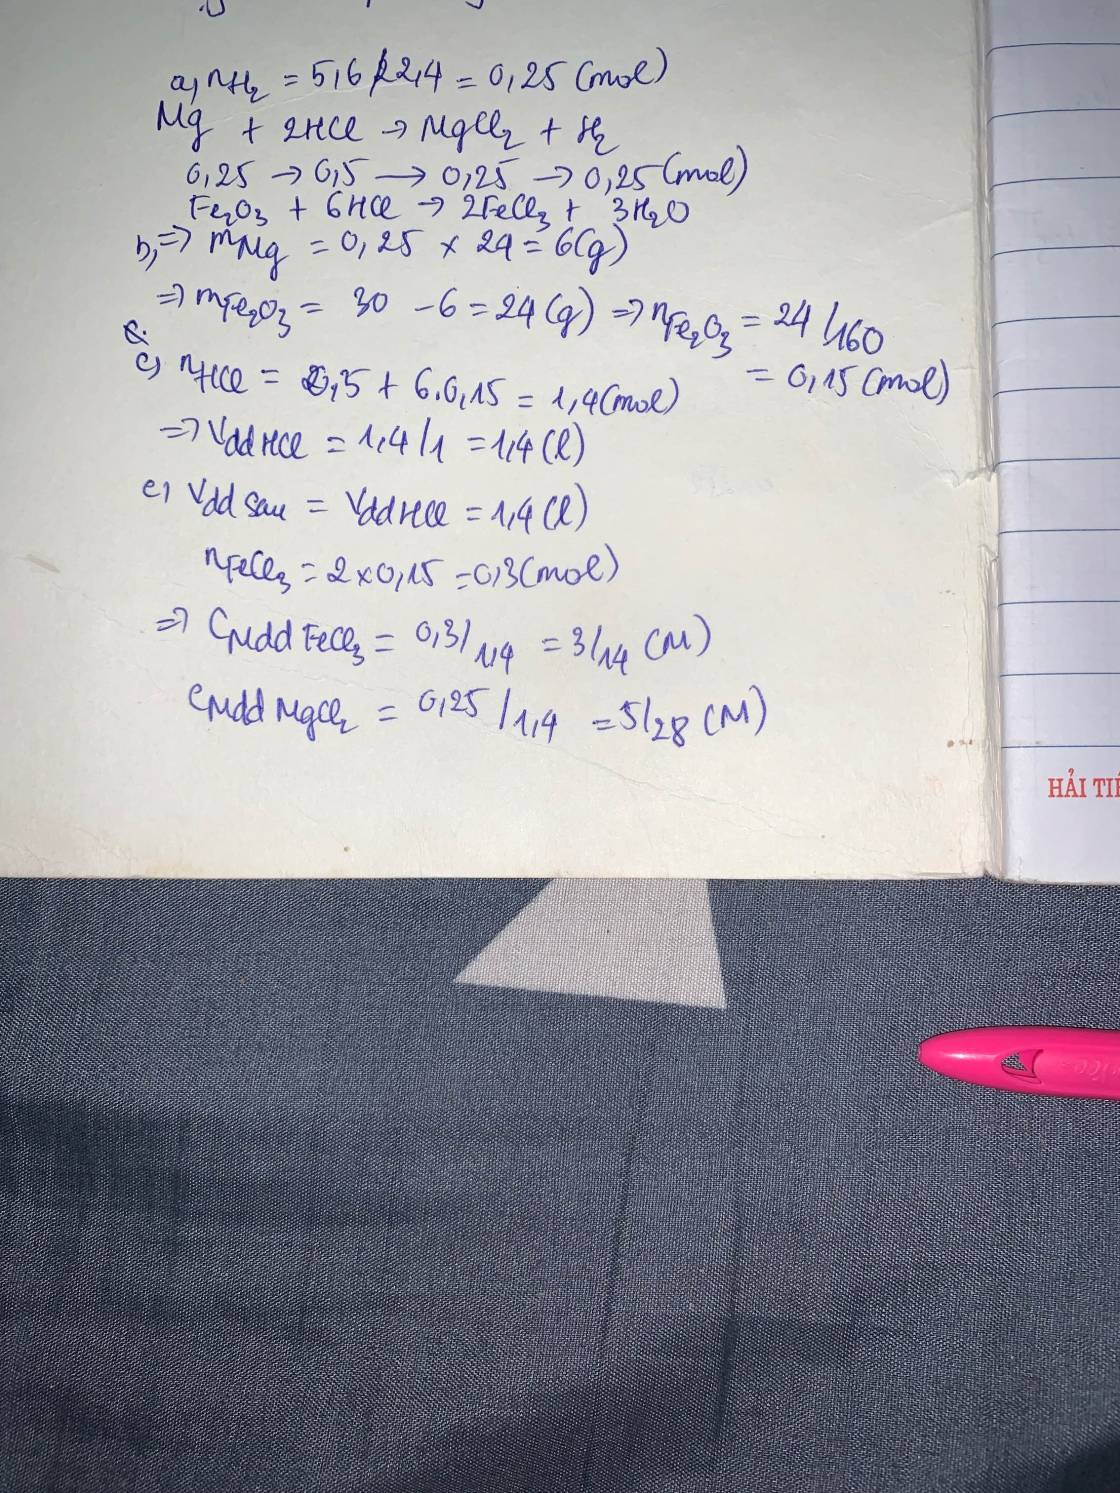 a, nH₂ = 5,6/22,4 = 0,25 (mol)
Mg + 2HCl → MgCl₂ + H₂
0,25 → 0,5 → 0,25 → 0,25 (mol)
Fe₂O₃ + 6HCl → 2FeCl₃ + 3H₂O
b, => mMg = 0,25 × 24 = 6(g)
=> mFe₂O₃ = 30 - 6 = 24 (g) => nFe₂O₃ = 24/160
= 0,15 (mol)
c, nHCl = 0,5 + 6.0,15 = 1,4 (mol)
=> Vdd HCl = 1,4/1 = 1,4 (l)
c, Vdd sau = Vdd HCl = 1,4 (l)
nFeCl₃ = 2 × 0,15 = 0,3 (mol)
=> CMdd FeCl₃ = 0,3/1,4 = 3/14 (M)
CMdd MgCl₂ = 0,25/1,4 = 5/28 (M)
HẢI TI